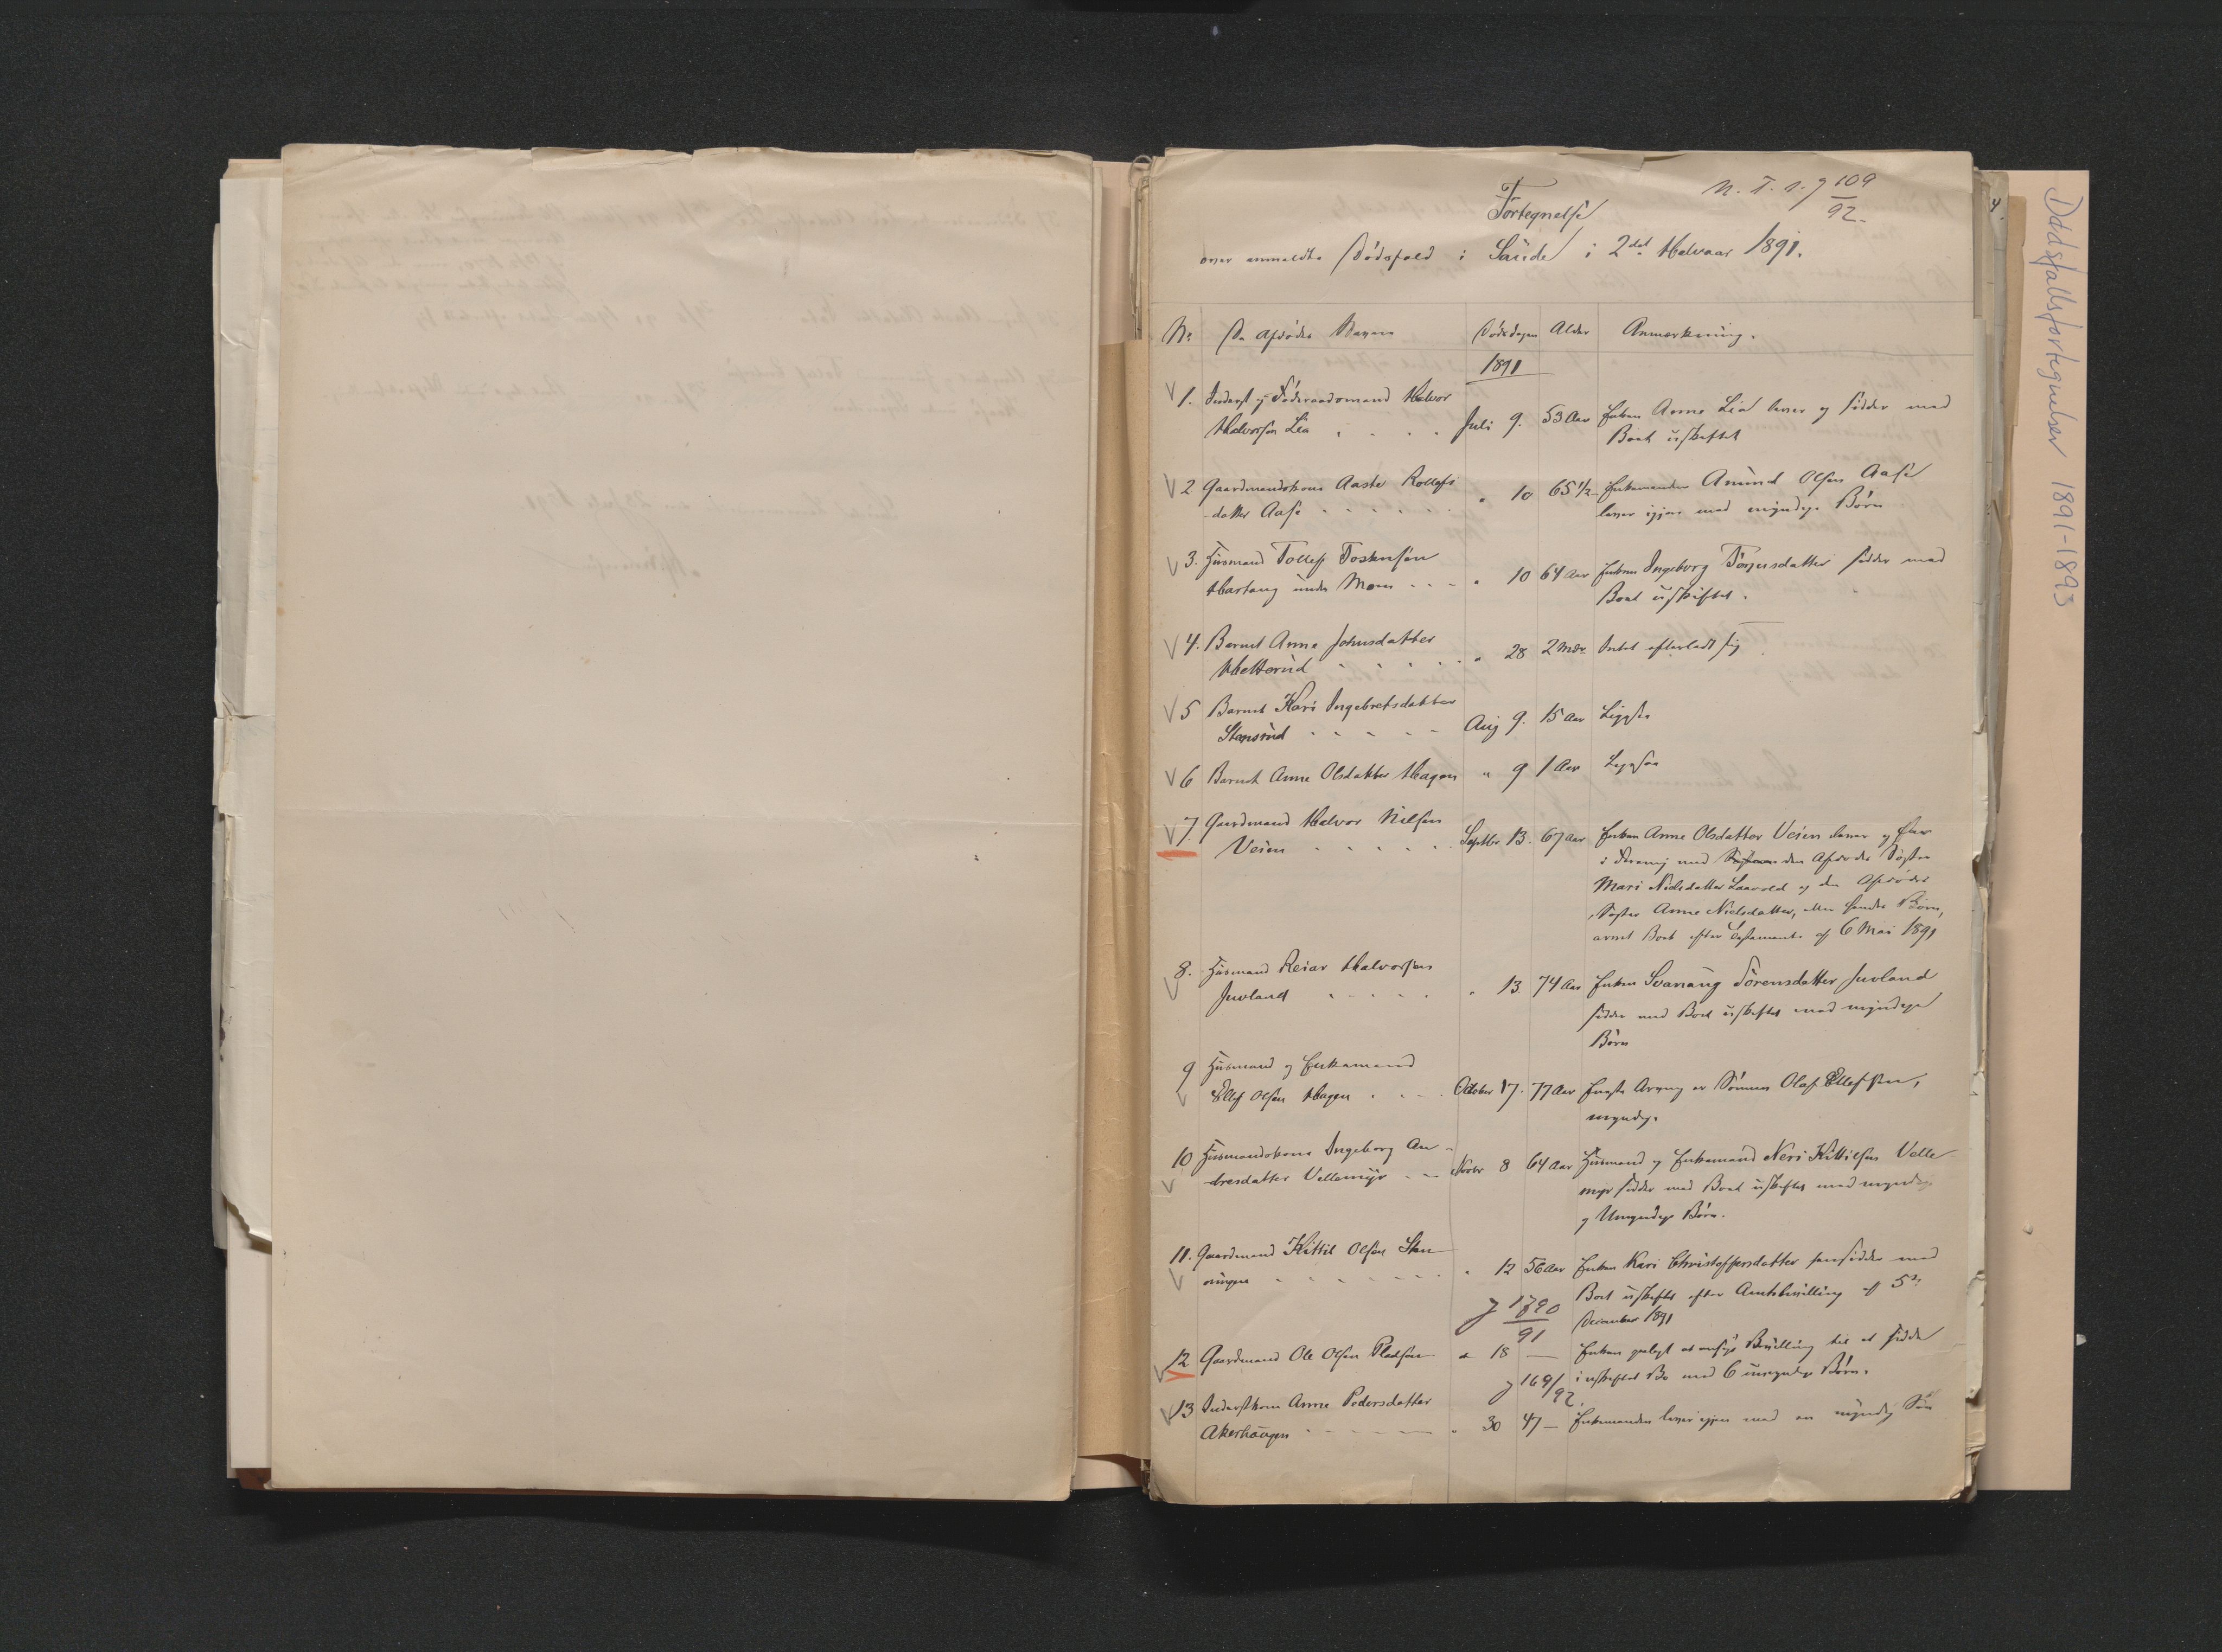 N. T. s. J 109/92.
Fortegnelse
over anmeldte Dødsfald i Saude i 2det Halvaar 1891.
No De afdødes Navne Dødsdagen Alder Anmærkning.
1891
1. Inderst og Føderaadsmand Halvor
Halvorsen Lia Juli 9. 53 Aar Enken Anne Lia lever og sidder med
Boet uskiftet
2 Gaardmandskone Aaste Rollefs
-datter Aase " 10 65 1/2 Enkemanden Amund Olsen Aase
lever igjen med myndige Børn
3. Husmand Tollef Tostensen
Hartaug under Moen " 10 64 Aar Enken Ingeborg Tørjersdatter sidder med
Boet uskiftet.
4. Barnet Anne Johnsdatter
Hetterud " 28 2 Mdr. Intet efterladt sig
5 Barnet Kari Ingebretsdatter
Stensrud Aug 9. 15 Aar Ligesaa
6 Barnet Anne Olsdatter Hagen " 9 1 Aar Ligesaa
7. Gaardmand Halvor Nilsen
Veien Septbr 13. 67 Aar Enken Anne Olsdatter Veien lever og
i med den Afdødes Søster
Mari Nielsdatter Laavold og den Afdødes
Søster Anne Nielsdatter, eller hendes Børn,
arvet Boet efter Testamente af 6 Mai 1891
8. Husmand Reiar Halvorsen
Juvland " 13. 74 Aar Enken Svanaug Sørensdatter Juvland
sidder med Boet uskiftet med myndige
Børn
9 Husmand og Enkemand
Ellef Olsen Hagen October 17. 77 Aar Eneste Arving er Sønnen Olaf Ellefsen,
myndig.
10 Husmandskone Ingeborg An-
dresdatter Vellemyr Novbr 8 64 Aar Husmand og Enkemand Neri Kittilsen Velle
myr sidder med Boet uskiftet med myndige
og Umyndige Børn.
11. Gaardmand Kittil Olsen Sten
" 12 56 Aar Enken Kari Christoffersdatter hensidder med
Boet uskiftet efter Amtsbevilling af 5te
December 1891
J 1890/91
12 Gaardmand Ole Olsen " 18 — Enken paalagt at ansøge Bevilling til at sidde
i uskiftet Bo med 6 umyndige Børn.
J 169/92.
13 Inderstkone Anne Pedersdatter
Akerhaugen " 30 47 — Enkemanden lever igjen med en myndig Søn
Dødsfallsfortegnelser 1891-1893